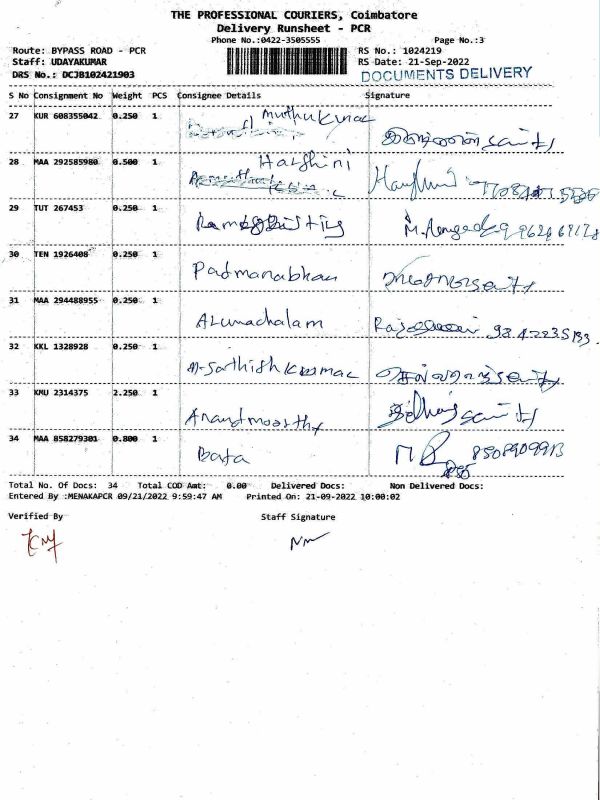 THE PROFESSIONAL COURIERS, Coimbatore
Delivery Runsheet - PCR
Phone No.:0422-3505555 Page No.:3
Route: BYPASS ROAD - PCR RS No.: 1024219
Staff: UDAYAKUMAR RS Date: 21-Sep-2022
DRS No.: DCJB102421903 DOCUMENTS DELIVERY
S No Consignment No Weight PCS Consignee Details Signature
27 KUR 608355042 0.250 1 muthukumar
28 MAA 292585980 0.500 1 Harshini
29 TUT 267453 0.250 1
30 TEN 1926408 0.250 1 Padmanabhan
31 MAA 294488955 0.250 1 Arunachalam
32 KKL 1328928 0.250 1 M-Sarthish kumar
33 KMU 2314375 2.250 1 Anandmoorthy
34 MAA 858279301 0.800 1 Bata 8508909913
Total No. Of Docs: 34 Total COD Amt: 0.00 Delivered Docs: Non Delivered Docs:
Entered By :MENAKAPCR 09/21/2022 9:59:47 AM Printed On: 21-09-2022 10:00:02
Verified By Staff Signature